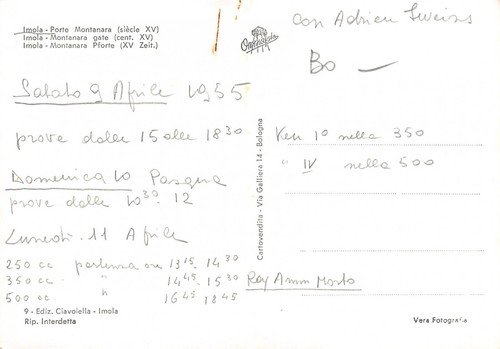 Imola - Porte Montanara (siècle XV)
Imola - Montanara gate (cent. XV)
Imola - Montanara Pforte (XV Zeit.)
con Adrien
Bo —
Sabato 9 Aprile 1955
prove dalle 15 alle 18 30
Domenica 10 Pasqua
prove dalle 10 30. 12
Lunedì. 11 Aprile
250 cc partenza ore 13 15. 14 30
350 cc " " 14 45. 15 30
500 cc " 16 45 18 45
9 - Ediz. Ciavolella - Imola
Rip. Interdetta
Cartovendita - Via Galliera 14 - Bologna
Ken 1º nella 350
" IV nella 500
Ray Amm Morto
Vera Fotografia